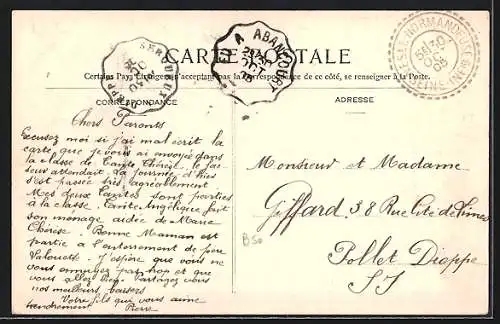 CARTE POSTALE
Certains Pays étrangers n'acceptant pas la correspondance de ce côté, se renseigner à la Poste.
CORRESPONDANCE
ADRESSE
ABANCOURT
Chers Parents
Excusez moi si j'ai mal écrit la
carte que je vous ai envoyée dans
la classe de Tante Thérèse. Le fais
sous attendait. La journée d'hier
s'est passée très agréablement
Mes deux Tantes sont parties
à la classe. Tante Angélique fait
son ménage aidée de Marie
Thérèse. Bonne Maman est
partie à l'enterrement de père
J'espère que vous ne
vous ennuyez pas trop et que
vous allez bien. Partagez vous
nos meilleurs baisers
Votre fils qui vous aime
tendrement Pierre
Monsieur et Madame
Giffard 38 Rue Cité de Limes
Pollet Dieppe
S I
B50